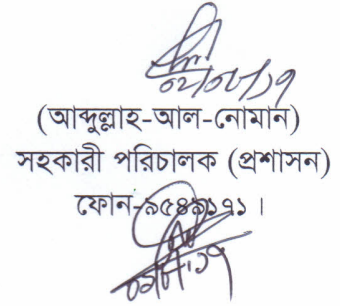 (আব্দুল্লাহ-আল-নোমান)
সহকারী পরিচালক (প্রশাসন)
ফোন-৯৫৪৯১৭১ ।